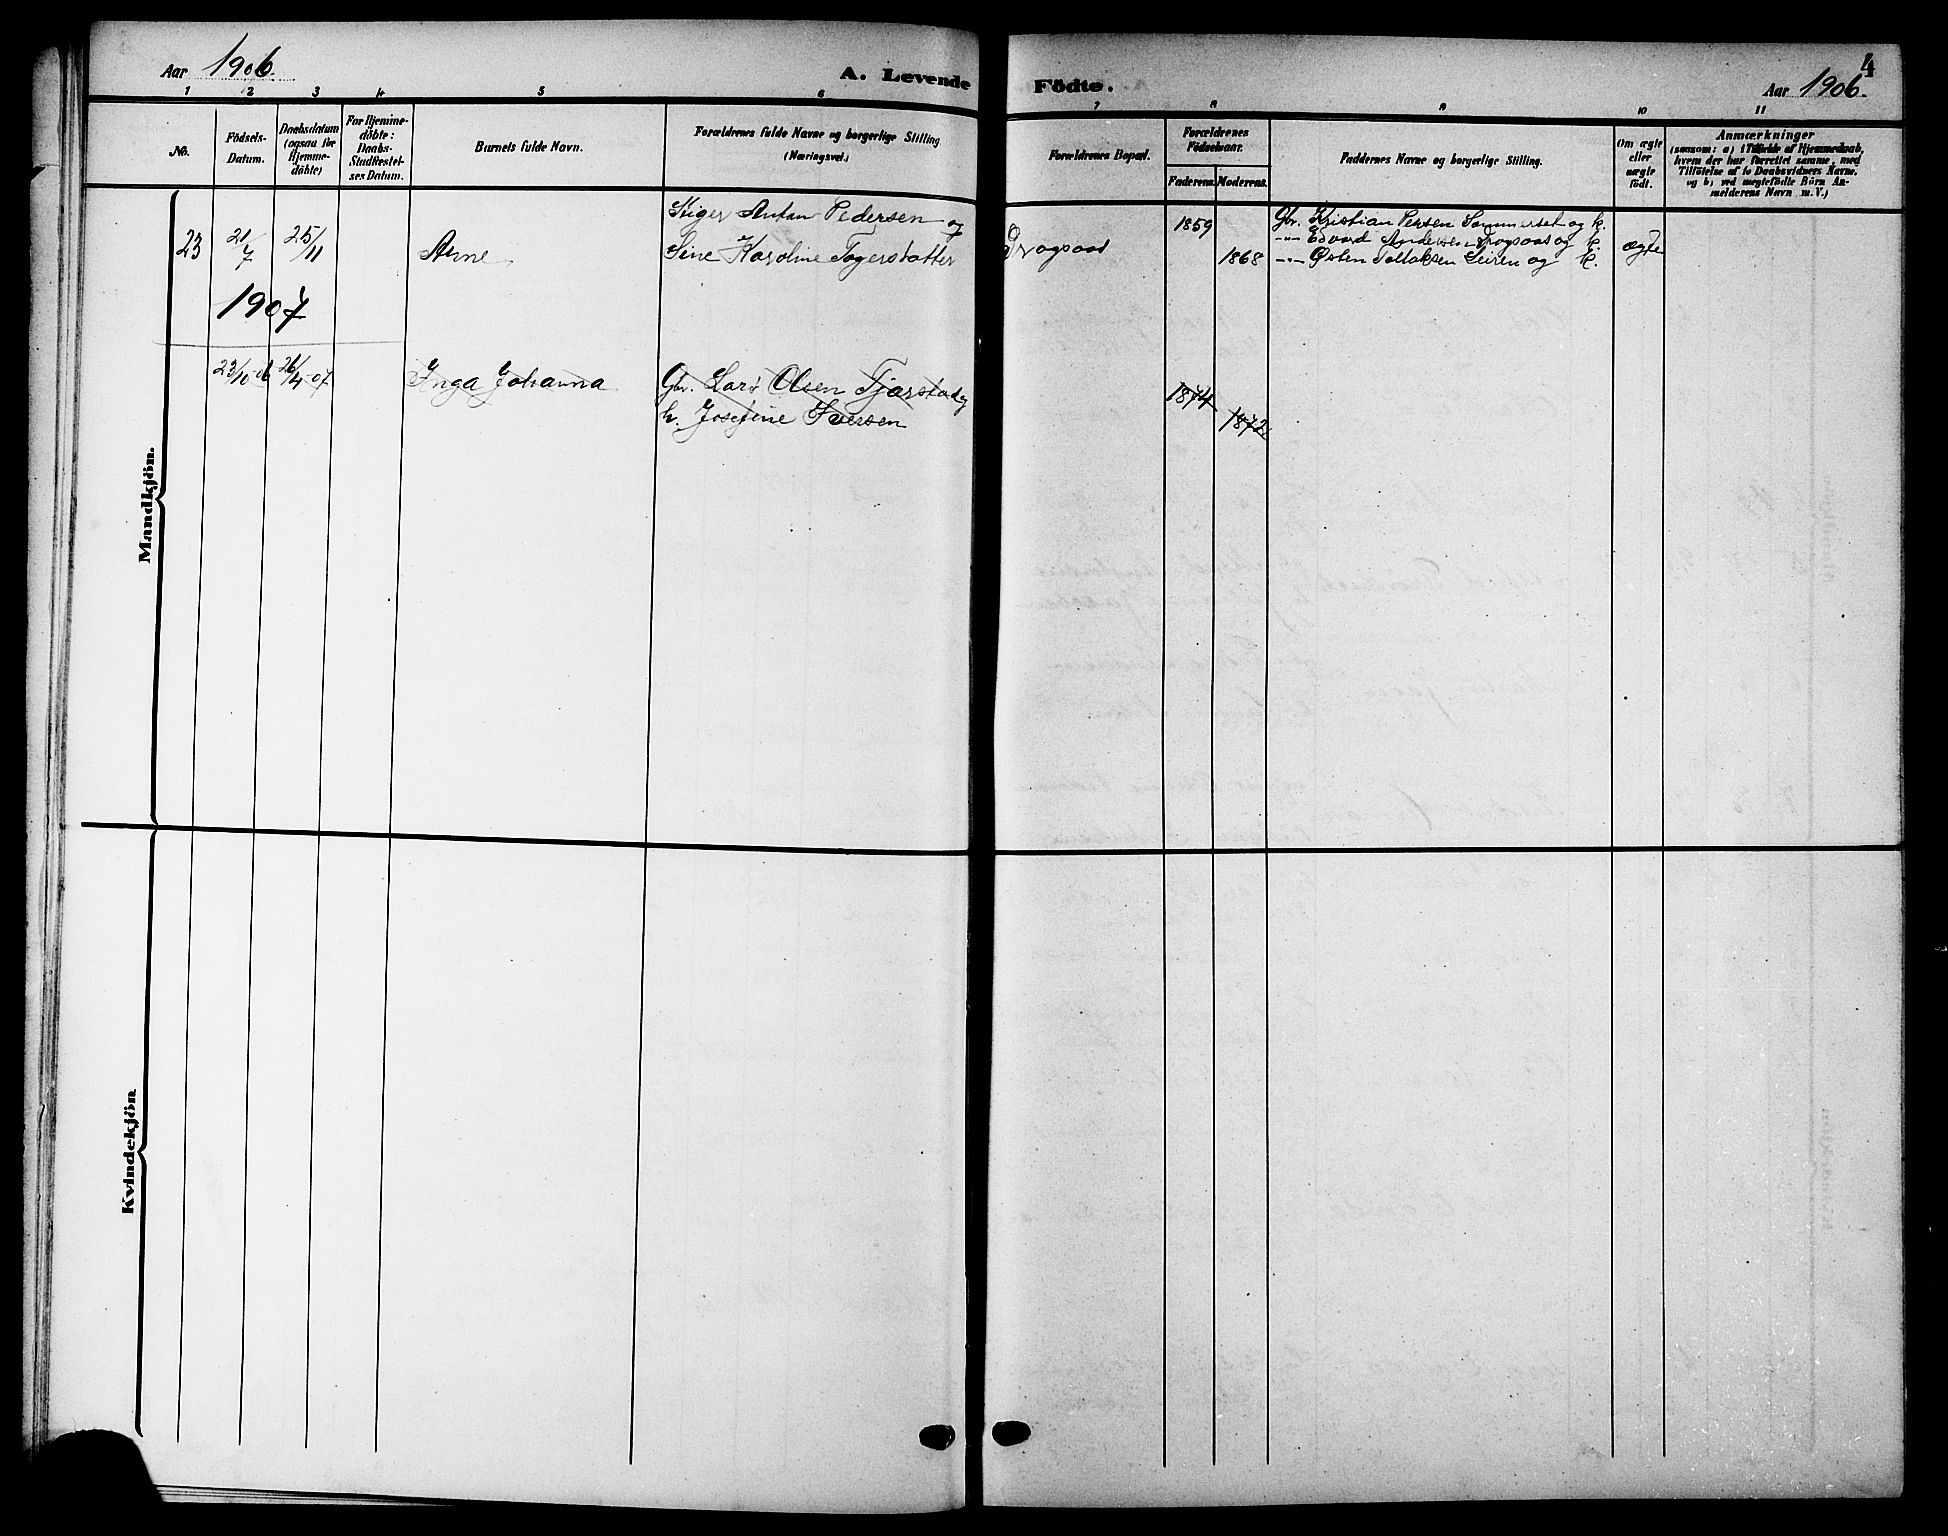 Aar 1906.
A. Levende
1 2 3 4 5 6
No.
Födsels-
Datum.
Daabsdatum
(ogsaa for
Hjemme-
døbte)
For Hjemme-
døbte:
Daabs-
Stadfæstel-
ses Datum.
Barnets fulde Navn.
Forældrenes fulde Navne og borgerlige Stilling
(Næringsvei.)
Mandkjön.
23
21/7
25/11
Arne
Anton Pedersen og
Sine Karoline
1907
23/10-06
26/4-07
Inga Johanna
Gbr. Lars Olsen Tjærstad og
h. Josefine Iversen
Kvindekjön
4
Födte.
Aar 1906.
7 8 9 10 11
Forældrenes Bopæl.
Forældrenes
Födselsaar.
Faderens. Moderens.
Faddernes Navne og borgerlige Stilling.
Om ægte
eller
uægte
født.
Anmærkninger
(saasom: a) i Tilfælde af Hjemmedaab,
hvem der har forrettet samme, med
Tilføielse af to Daabsvidners Navne,
og b) ved uægtefödte Börn An-
melderens Navn m. V.)
1859
1868
Gbr. Kristian Persen Sommerset og k.
-"- Edvard Andersen og k.
-"- Østen Tollaksen Leiren og k.
ægte
1874
1872